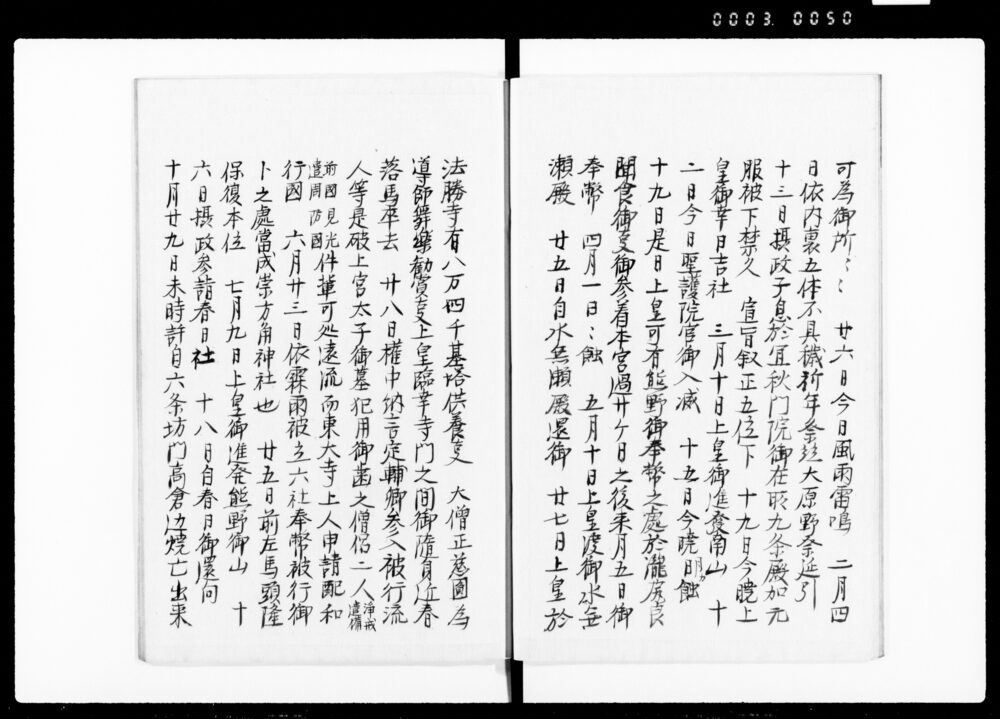 0003. 0050
可為御所〻〻　廿六日今日風雨雷鳴　二月四
日依内裏五体不具穢祈年祭並大原野祭延引
十三日摂政子息於宜秋門院御在所九条殿加元
服被下禁久　宣旨叙正五位下　十九日今暁上
皇御幸日吉社　三月十日上皇御進發南山　十
二日今日聖護院宮御入滅　十五日今暁月蝕
十九日是日上皇可有熊野御奉幣之處於瀧尻良
聞食御夏御参着本宮過廿ケ日之後来月五日御
奉幣　四月一日〻蝕　五月十日上皇渡御水無
瀬殿　廿五日自水無瀬殿還御　廿七日上皇於
法勝寺有八万四千基塔供養夏　大僧正慈圓為
導師舞樂勧賞夏上皇臨幸寺門之間御随身近春
落馬卒去　廿八日權中納言定輔卿参入被行流
人等是破上宮太子御墓犯用御歯之僧侶二人浄戒遣備
前國見光遣周防國件輩可処遠流而東大寺上人申請配和
行國　六月廿三日依霖雨被立六社奉幣被行御
卜之處當成祟方角神社也　廿五日前左馬頭隆
保復本位　七月九日上皇御進発熊野御山　十
六日摂政参詣春日社　十八日自春日御還向
十月廿九日未時許自六条坊門高倉辺焼亡出来